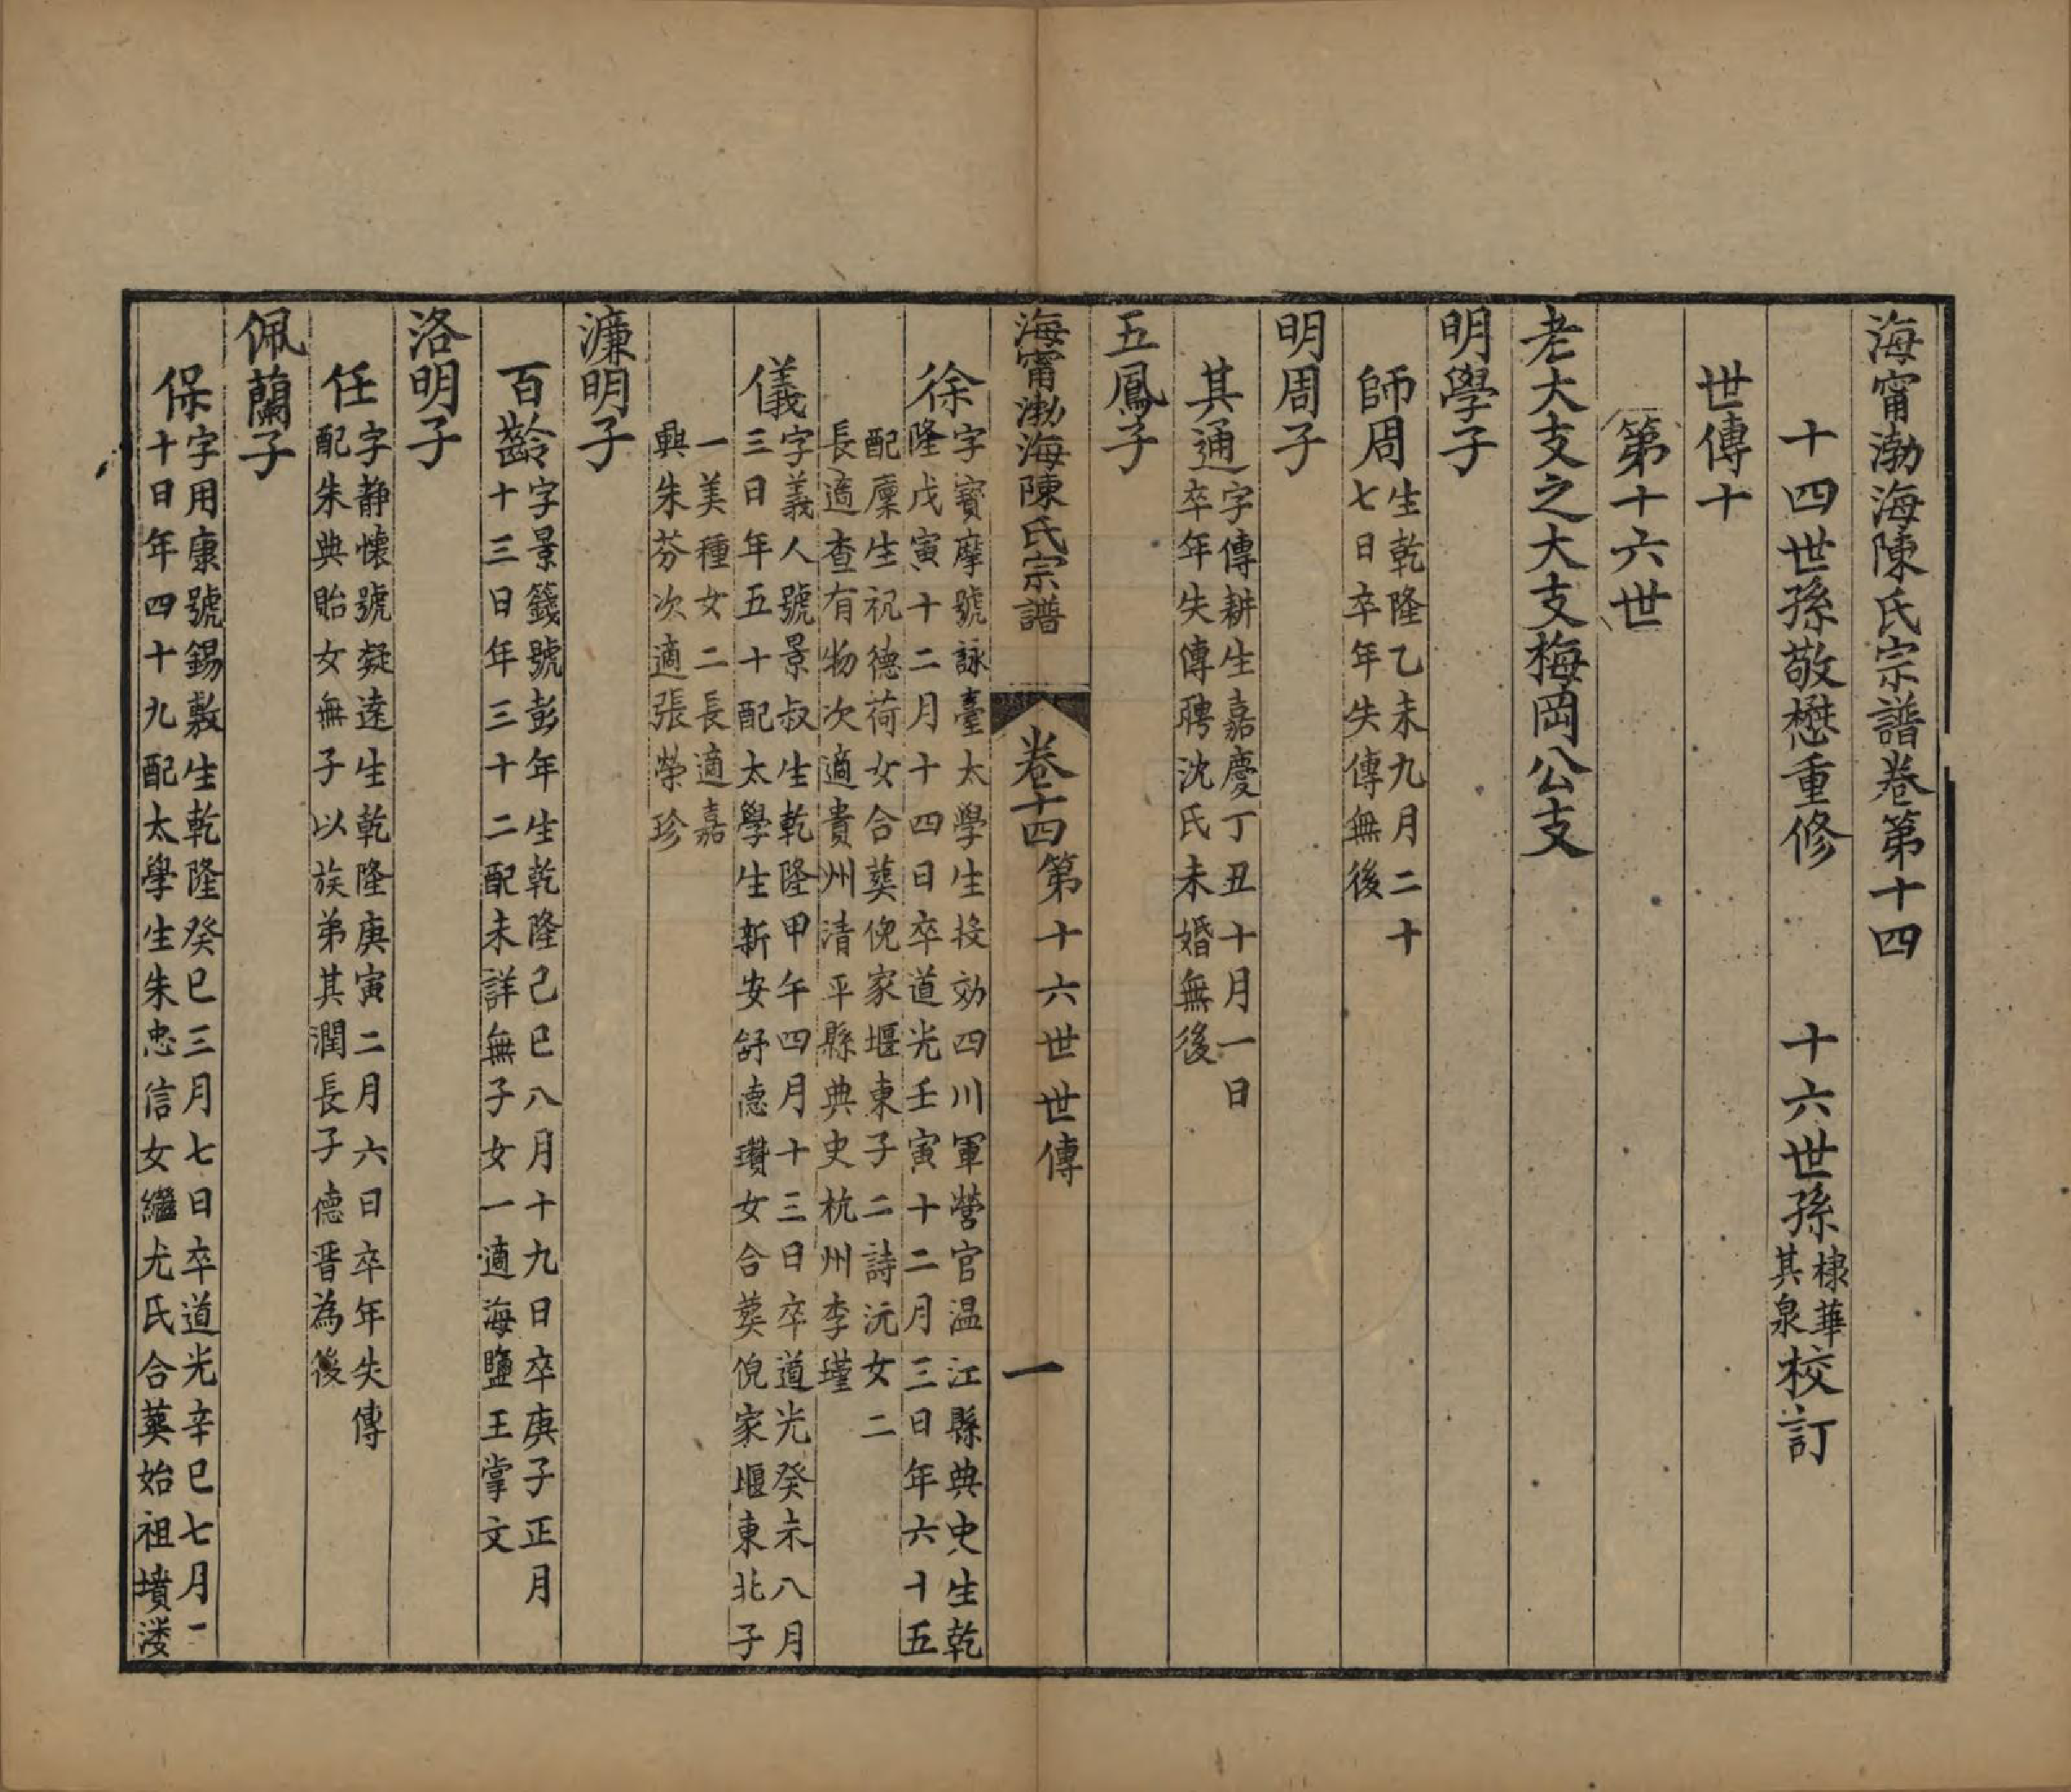 海甯渤海陳氏宗譜卷第十四
十四世孫敬懋重修　十六世孫棣華其泉校訂
世傳十
第十六世
老大支之大支梅岡公支
明學子
師周生乾隆乙未九月二十
七日卒年失傳無後
明周子
其通字傳耕生嘉慶丁丑十月一日
卒年失傳聘沈氏未婚無後
五鳳子
海甯渤海陳氏宗譜　卷十四　第十六世世傳　一
徐字寶摩號詠臺太學生投効四川軍營官温江縣典史生乾
隆戊寅十二月十四日卒道光壬寅十二月三日年六十五
配廩生祝德荷女合葬倪家堰東子二詩沅女二
長適查有物次適貴州清平縣典史杭州李瑾
儀字義人號景叔生乾隆甲午四月十三日卒道光癸未八月
三日年五十配太學生新安舒德瓚女合葬倪家堰東北子
一美種女二長適嘉
興朱芬次適張榮珍
濂明子
百齡字景籛號彭年生乾隆己巳八月十九日卒庚子正月
十三日年三十二配未詳無子女一適海鹽王掌文
洛明子
任字靜懷號凝遠生乾隆庚寅二月六日卒年失傳
配朱典貽女無子以族弟其潤長子德晋為後
佩蘭子
保字用康號錫敷生乾隆癸巳三月七日卒道光辛巳七月一
十日年四十九配太學生朱忠信女繼尤氏合葬始祖墳漊